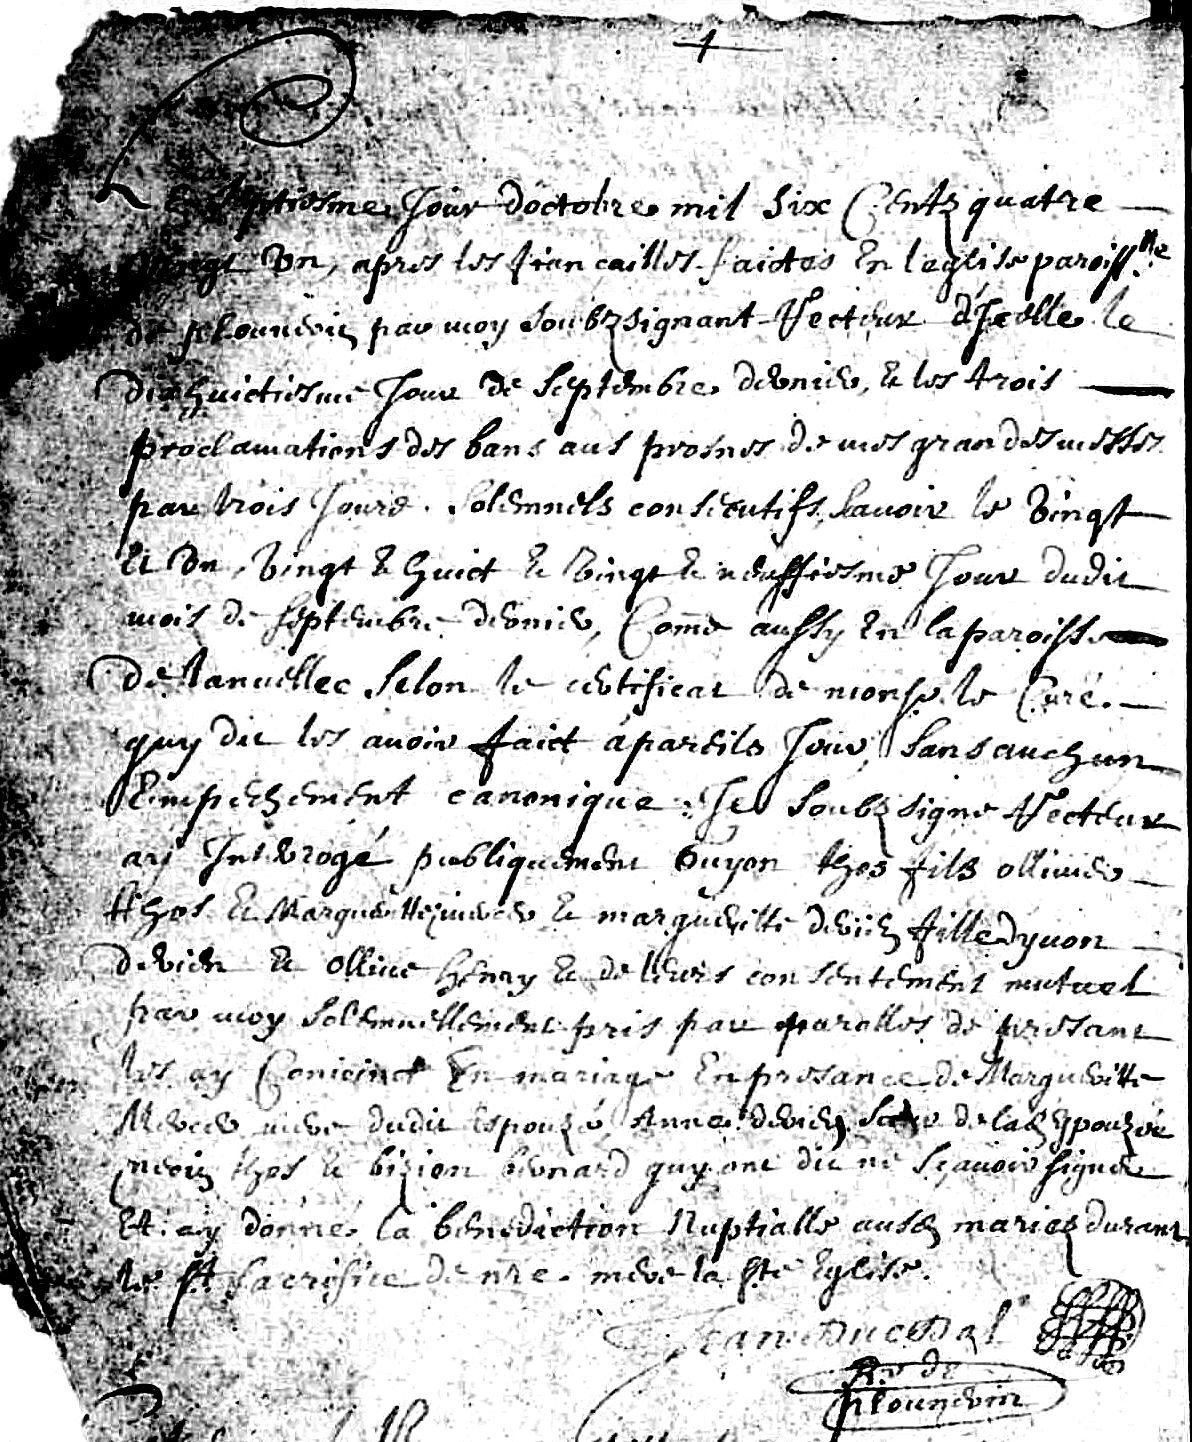 Le septiesme Jour d'octobre mil six Centz quatre
vingt Vn, apres les fiancailles faictes En l'eglise paroiss.lle
de plounevin par moy soubzsignant Recteur d'Jcelle le
dixhuictiesme Jour de septembre dernier, & les trois
proclamations des bans aus prosnes de mes grandes messes
par trois Jours solemnels consecutifs, sauoir le Vingt
Et Vn, Vingt & huict & Vingt & neuffiesme Jour dudit
mois de septembre dernier, Come aussy En la paroisse
de lanuellec selon le certificat de monsr. le Curé.
quy dit les auoir faict à pareils Jour, sans auchun
Empechement canonique. Je soubzsigne Recteur
ay Interrogé publiquement Guyon thos fils ollivier
thos & Margueritte mercer & margueritte derien fille d'yuon
derien & ollive henry & de leurs consentement mutuel
par moy solemnellement pris par parolles de presant
les ay Conioinct En mariage En presance de Margueritte
Mercer mere dudit Espouzé, Anne derien sœur de lad. Espouzée
thos & bizien bernard quy ont dit ne sçauoir signer
Et ay donné la benediction Nuptialle ausd. mariez durant
le st sacrifice de nre. mere la ste Eglise.
Jean
Rr. de
plounevin